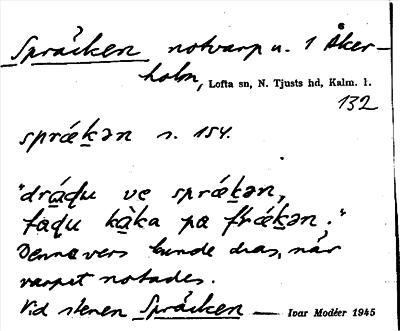 Spräcken notvarp u. 1 Åker-
holm, Lofta sn, N. Tjusts hd, Kalm. l.
132
sprǽḵən s. 154.
"drá̱ɖu ve sprǽḵən,
faɖu kà̱ka pa frǽḵən."
Denna vers kunde dras, när
varpet notades.
Vid stenen Spräcken — Ivar Modéer 1945